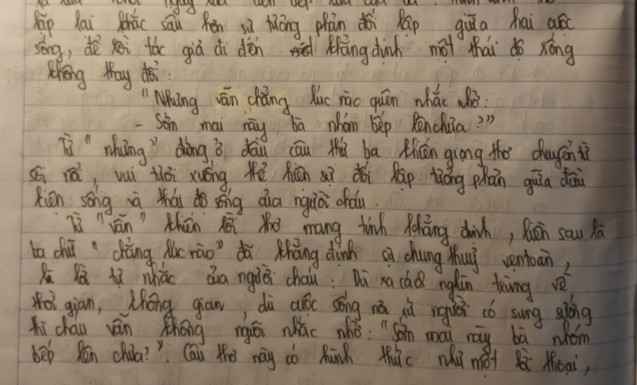 lặp lại khắc sâu hơn sự tương phản đối lập giữa hai cuộc
sống, để rồi tác giả đi đến khẳng định một thái độ sống
không thay đổi:
"Nhưng vẫn chẳng lúc nào quên nhắc nhở:
- Sớm mai này, bà nhóm bếp lên chưa?"
Từ "nhưng" đứng ở đầu câu thứ ba khiến giọng thơ chuyển từ
sôi nổi, vui tươi xuống thể hiện sự đối lập tương phản giữa điều
kiện sống và thái độ sống của người cháu.
Từ "vẫn" khiến lời thơ mang tính khẳng định, liền sau là
ba chữ "chẳng lúc nào" đã khẳng định sự chung thuỷ vẹn toàn,
là lời tự nhắc của người cháu: Dù xa cách nghìn trùng về
thời gian, không gian, dù cuộc sống nơi xứ người có sung sướng
thì cháu vẫn không nguôi nhắc nhở: "Sớm mai này bà nhóm
bếp lên chưa?". Câu thơ này có hình thức như một lời thoại,